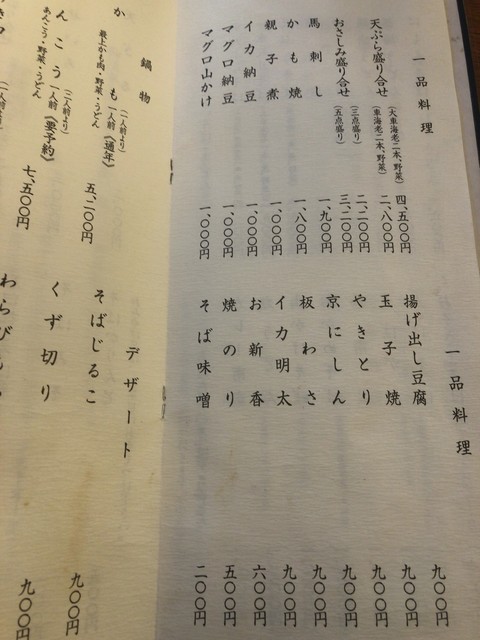 一品料理
天ぷら盛り合せ (大車海老二本、野菜) 四、五〇〇円
(車海老二本、野菜) 二、八〇〇円
おさしみ盛り合せ (三点盛り) 二、二〇〇円
(五点盛り) 三、二〇〇円
馬刺し 一、九〇〇円
かも焼 一、八〇〇円
親子煮 一、〇〇〇円
イカ納豆 一、〇〇〇円
マグロ納豆 一、〇〇〇円
マグロ山かけ 一、〇〇〇円
一品料理
揚げ出し豆腐 九〇〇円
玉子焼 九〇〇円
やきとり 九〇〇円
京にしん 九〇〇円
板わさ 九〇〇円
イカ明太 九〇〇円
お新香 六〇〇円
焼のり 五〇〇円
そば味噌 二〇〇円
鍋物
(二人前より)
かも 一人前《通年》 五、二〇〇円
最上かも肉・野菜・うどん
(二人前より)
んこう 一人前《要予約》 七、五〇〇円
あんこう・野菜・うどん
デザート
そばじるこ 九〇〇円
くず切り 九〇〇円
わらび